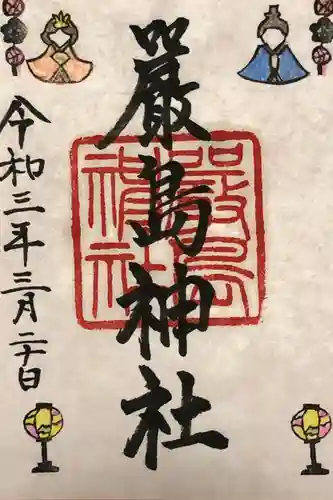 嚴島神社
嚴島神社
令和三年三月二十日